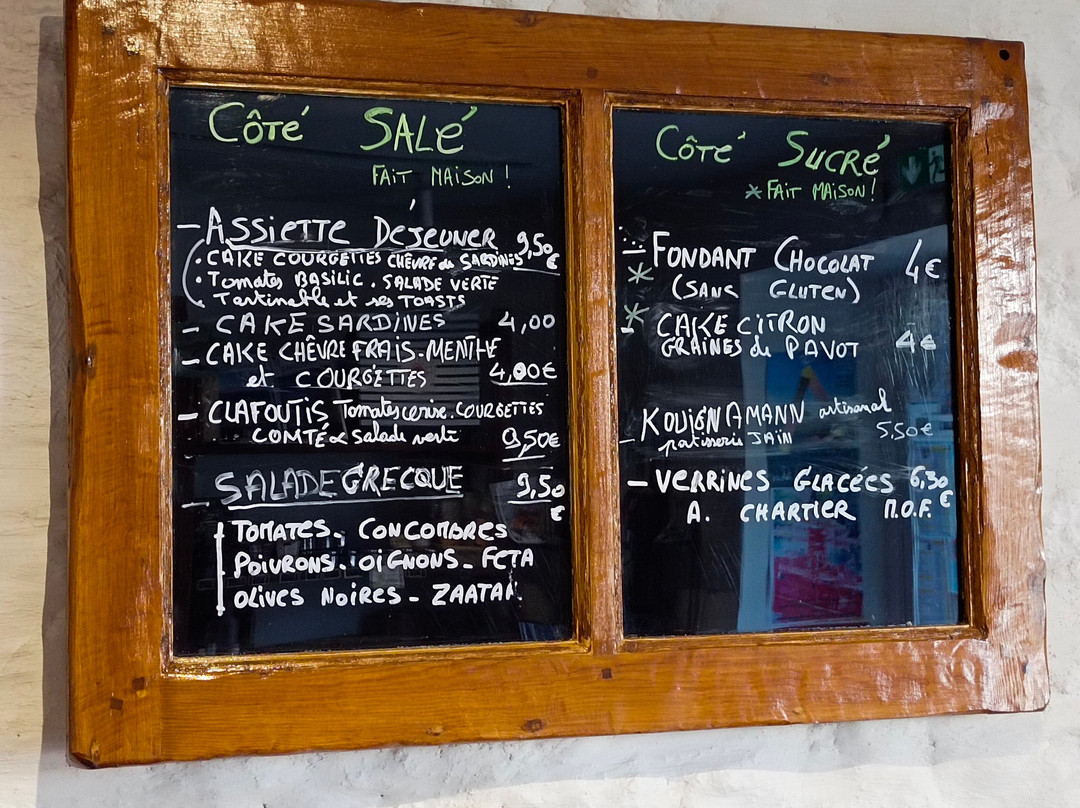 Côté SALé
FAIT MAISON !
- ASSIETTE DÉJEUNER 9,50 €
· CAKE COURGETTES CHÈVRE ou SARDINES
· Tomates BASILIC . SALADE VERTE
· Tartinable et ses TOASTS
- CAKE SARDINES 4,00
- CAKE CHÊVRE FRAIS - MENTHE
et COURGETTES 4,00€
- CLAFOUTIS Tomates cerise . COURGETTES
COMTÉ & Salade verte 9,50€
- SALADE GRECQUE 9,50 €
TOMATES, CONCOMBRES
POIVRONS . OIGNONS - FETA
OLIVES NOIRES - ZAATAR
Côté SUCRé
* FAIT MAISON !
- FONDANT CHOCOLAT 4€
* (SANS GLUTEN)
* - CAKE CITRON
GRAINES de PAVOT 4€
- KOUIGN AMANN artisanal
patisserie JAÏN 5,50€
- VERRINES GLACÉES 6,30 €
A. CHARTIER M.O.F.